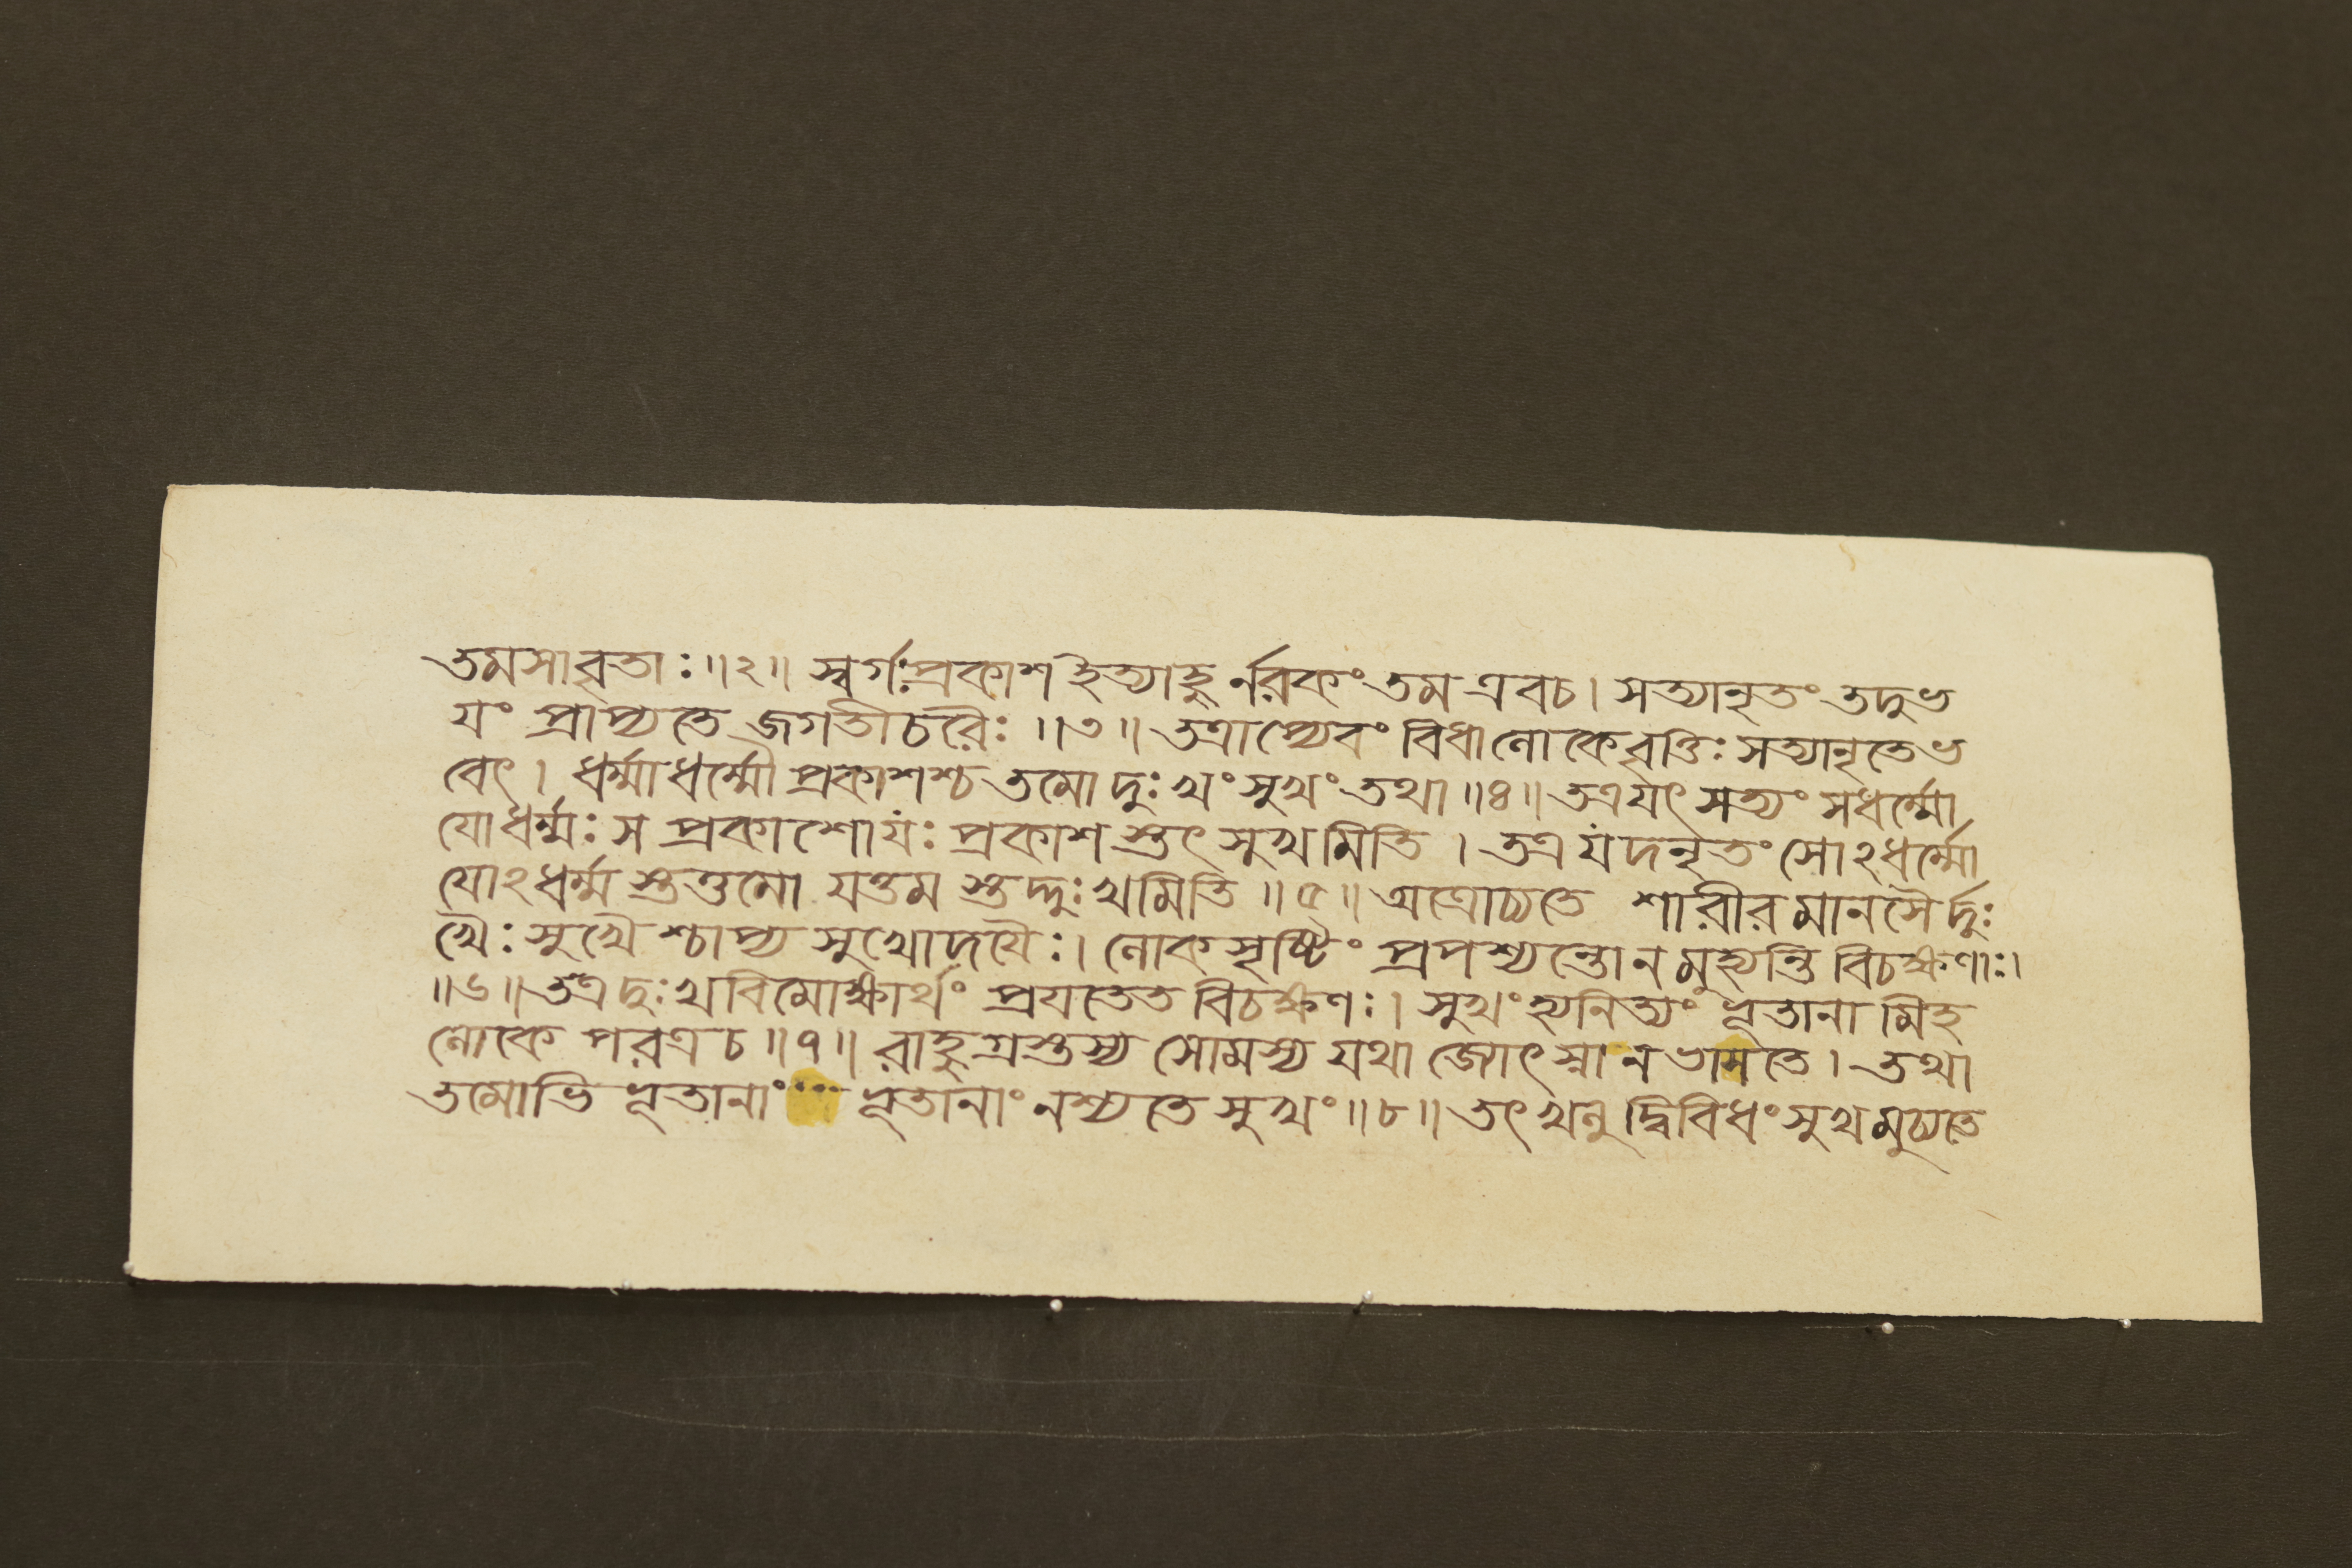 তমসাবৃতাঃ ॥২॥ স্বর্গঃপ্রকাশ ইত্যাহুর্ন্নরকং তম এবচ। সত্যানৃতং তদুভ
যং প্রাপ্যতে জগতীচরৈঃ ॥৩॥ তত্রাপ্যেবং বিধালোকেবৃত্তিঃ সত্যানৃতেভ
বেৎ। ধর্ম্মাধর্ম্মৌ প্রকাশশ্চ তমো দুঃখং সুখং তথা ॥৪॥ তত্র যৎ সত্যং সধর্ম্মো
যোধর্ম্মঃ স প্রকাশোযঃ প্রকাশ স্তৎ সুখমিতি। তত্র যদনৃতং সোঽধর্ম্মো
যোঽধর্ম্ম স্তত্তমো যত্তম স্তদ্দুঃখমিতি ॥৫॥ অত্রোচ্যতে শারীরমানসৈর্দুঃ
খৈঃ সুখৈ শ্চাপ্য সুখোদযৈঃ। লোকসৃষ্টিং প্রপশ্যন্তোনমুহ্যন্তি বিচক্ষণাঃ।
॥৬॥ তত্রদুঃখবিমোক্ষার্থং প্রযতেত বিচক্ষণঃ। সুখং হ্যনিত্যং ভূতানামিহ
লোকে পরত্রচ ॥৭॥ রাহুগ্রস্তস্য সোমস্য যথা জোৎস্না নভাসতে। তথা
তমোভি ভূতানাং ভূতানাং নশ্যতে সুখং ॥৮॥ তৎ খলু দ্বিবিধং সুখমুচ্যতে